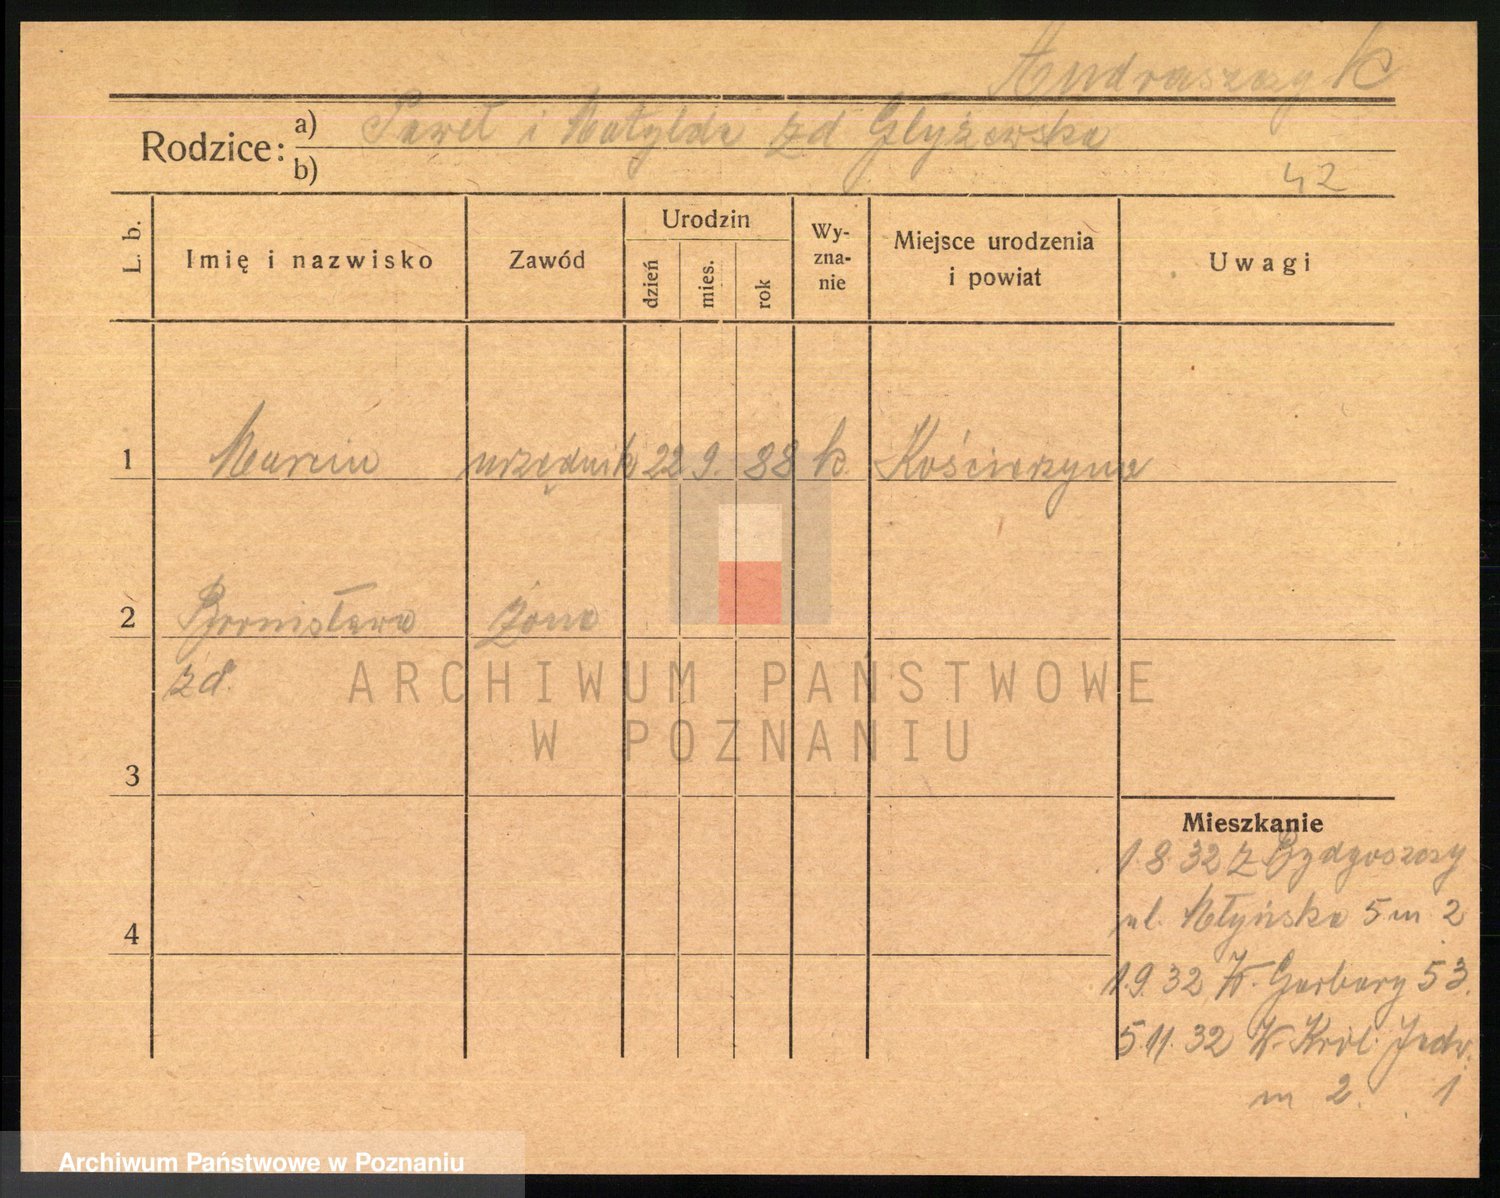 Andraszczyk
Rodzice: a) Paweł i Matylda zd Glyżewska
b)
42
L. b. Imię i nazwisko Zawód Urodzin dzień mies. rok Wy-zna-nie Miejsce urodzenia i powiat Uwagi
1 Marcin urzędnik 22 9. 88 k. Kościerzyna
2 Bronisława żona
zd.
3
4
Mieszkanie
1.8.32 z Bydgoszczy
ul. Młyńska 5 m 2
1.9.32 W. Garbary 53.
5.11.32 W. Król. Jadw.
m 2. 1
ARCHIWUM PAŃSTWOWE
W POZNANIU
Archiwum Państwowe w Poznaniu